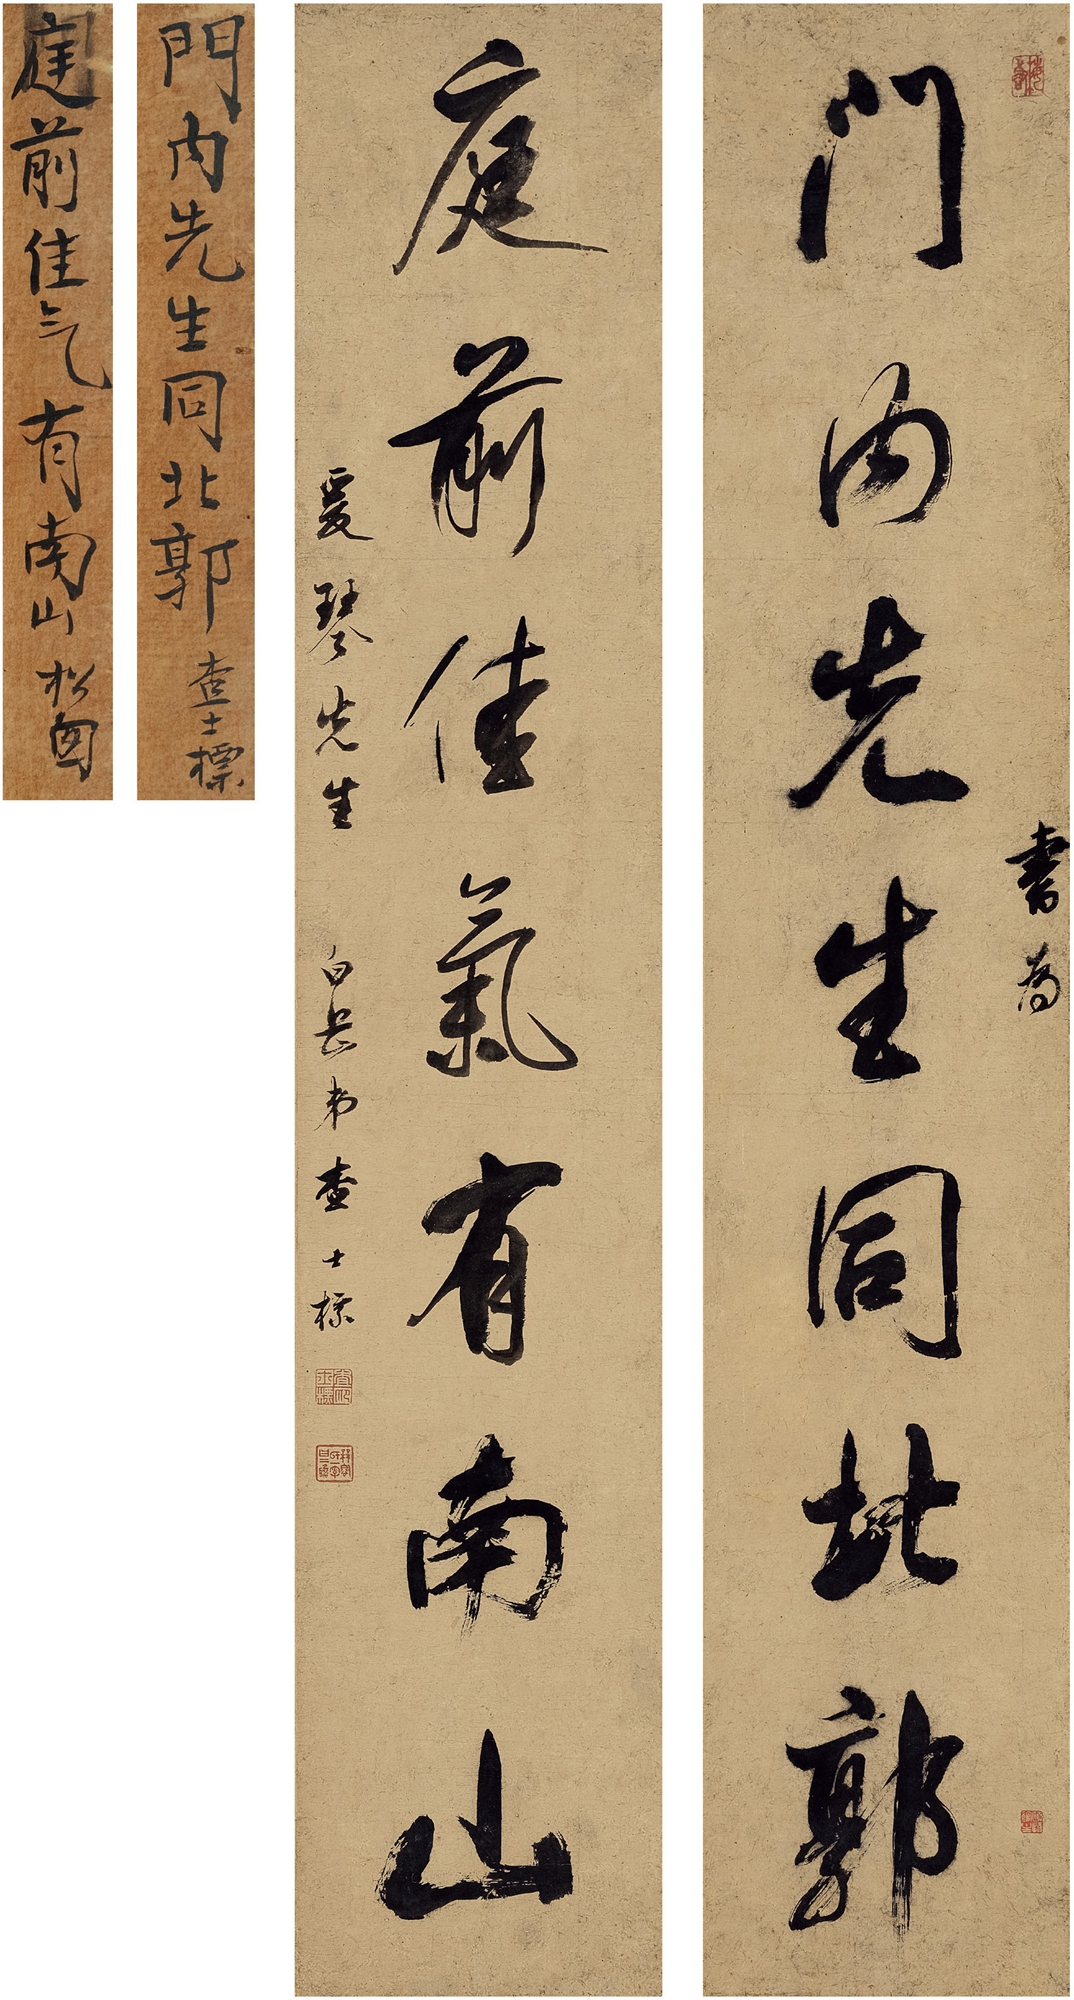 門內先生同北郭
書為
庭前佳氣有南山
爰琴先生 白岳弟查士標
門內先生同北郭 查士標
庭前佳气有南山 松窗